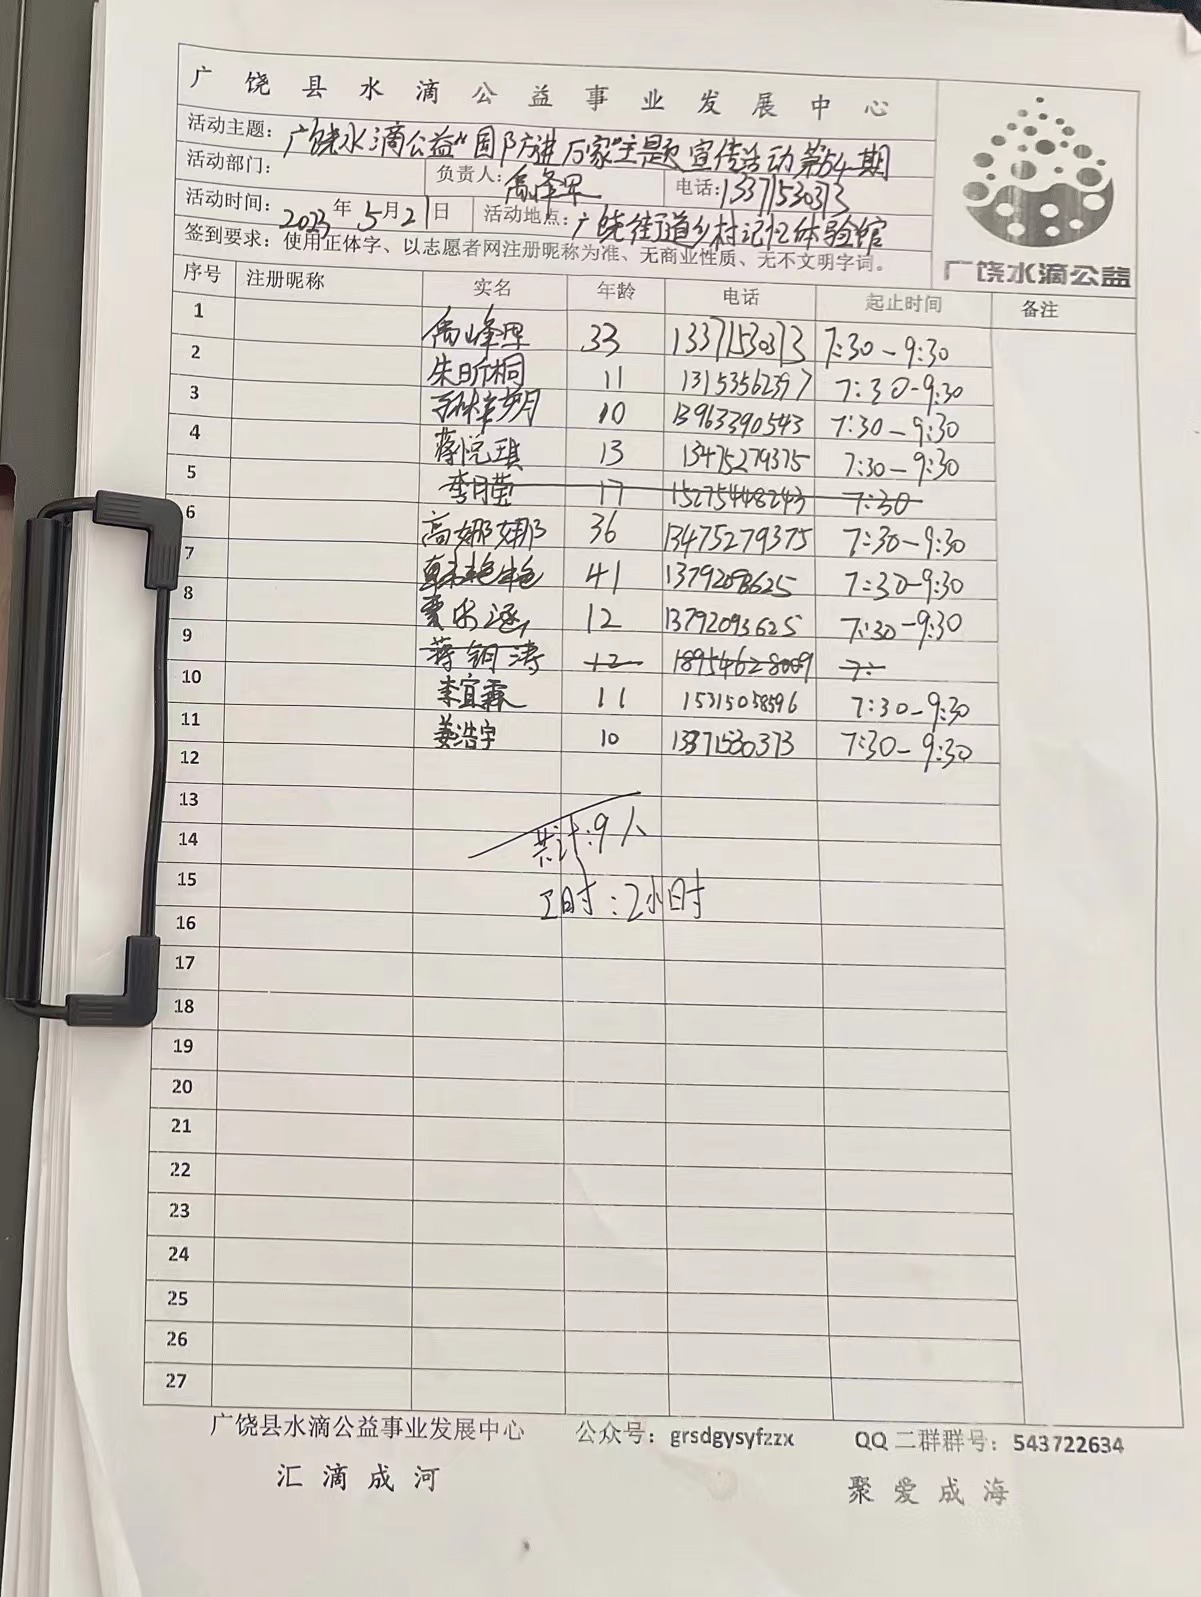 广饶县水滴公益事业发展中心
活动主题：广饶水滴公益“国防进万家”主题宣传活动第54期
活动部门： 负责人：禹峰军 电话：13371530373
活动时间：2023年5月21日 活动地点：广饶街道乡村记忆体验馆
签到要求：使用正体字、以志愿者网注册昵称为准、无商业性质、无不文明字词。
广饶水滴公益
序号 注册昵称 实名 年龄 电话 起止时间 备注
1 33 13371530373 7:30-9:30
2 朱昕桐 11 13153562397 7:30-9:30
3 10 13963390543 7:30-9:30
4 蒋悦琪 13 13475279375 7:30-9:30
5 李月莹 17 15275448243 7:30
6 高娜娜 36 13475279375 7:30-9:30
7 41 7:30-9:30
8 12 13792093625 7:30-9:30
9 蒋铜涛 12 18954628009 7:
10 李宜霖 11 15315058596 7:30-9:30
11 姜浩宇 10 13371530373 7:30-9:30
12
13
14 共计:9人
15 工时:2小时
16
17
18
19
20
21
22
23
24
25
26
27
广饶县水滴公益事业发展中心 公众号：grsdgysyfzzx QQ二群群号：543722634
汇滴成河 聚爱成海